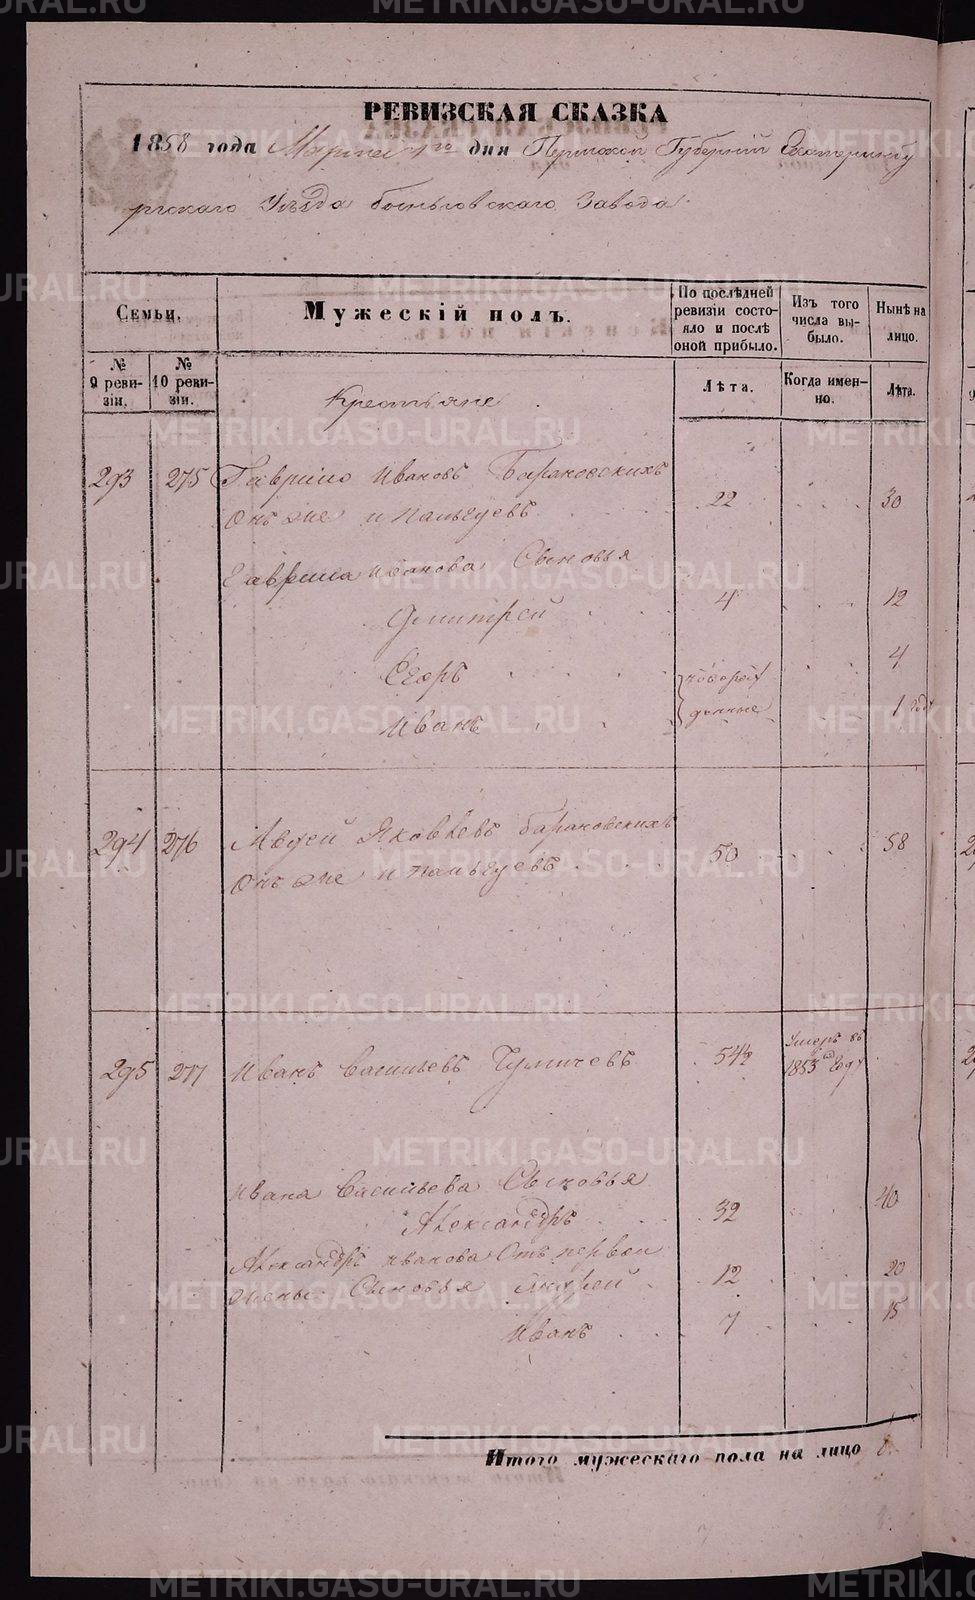 РЕВИЗСКАЯ СКАЗКА
1858 года Марта 1го дня Пермской Губернiи Екатеринбу
ргскаго Уѣзда Завода
Семьи.
Мужескiй полъ.
По послѣдней ревизiи состояло и послѣ оной прибыло.
Изъ того числа выбыло.
Нынѣ на лицо.
№ 9 ревизiи.
№ 10 ревизiи.
Крестьяне
Лѣта.
Когда именно.
Лѣта.
293 275 Гаврило Ивановъ Барановскихъ
Онъ же и Пальгуевъ 22 30
Гаврила Иванова Сыновья
Дмитрей 4 12
Егоръ новорож 4
Иванъ денные 1 году
294 276 Авдей Яковлевъ Барановскихъ 50 58
Онъ же и Пальгуевъ
295 277 Иванъ Васильевъ Чумичевъ 54½ Умеръ въ 1853 году
Ивана Васильева Сыновья
Александръ 32 40
Александръ Иванова Отъ первой
жены Сыновья Андрей 12 20
Иванъ 7 15
Итого мужескаго пола на лицо 8
METRIKI.GASO-URAL.RU